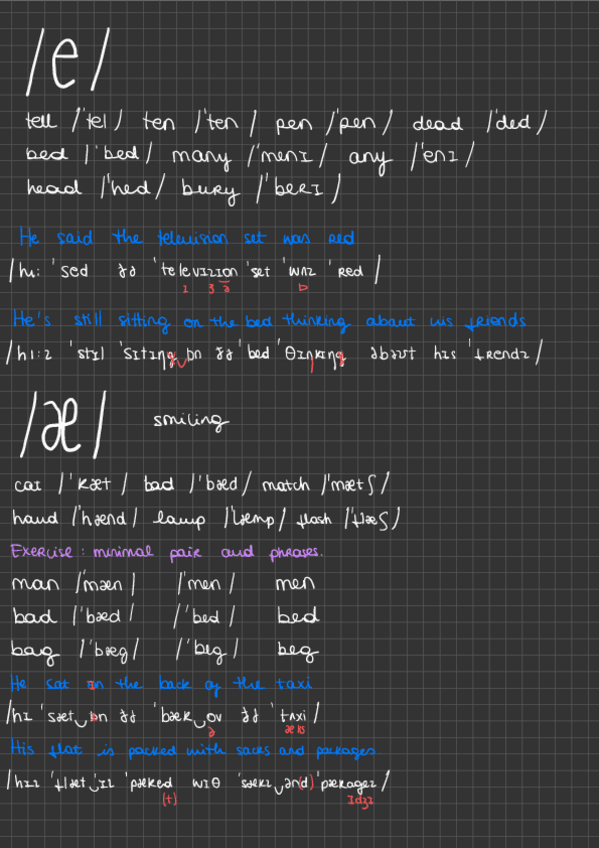 /e/
tell /'tel/ ten /'ten/ pen /'pen/ dead /'ded/
bed /'bed/ many /'menɪ/ any /'enɪ/
head /'hed/ bury /'berɪ/
He said the television set was red
/hi: 'sed ðə 'televɪzɪon 'set 'wɒz 'red/
ɪ ʒ ə ɒ
He's still sitting on the bed thinking about his friends
/hi:z 'stɪl 'sɪtɪŋg ɒn ðə 'bed 'θɪŋkɪŋg əbaʊt hɪs 'frendz/
/æ/ smiling
cat /'kæt/ bad /'bæd/ match /'mætʃ/
hand /'hænd/ lamp /'læmp/ flash /'flæʃ/
Exercise: minimal pair and phrases.
man /'mæn/ /'men/ men
bad /'bæd/ /'bed/ bed
bag /'bæg/ /'beg/ beg
He sat in the back of the taxi
/hɪ 'sæt ɒn ðə 'bæk ov ðə 'tʌxi/
ə æks
His flat is packed with sacks and packages
/hɪz 'flæt ɪz 'pæked wɪθ 'sækz ən(d) 'pækagez/
(t) ɪdʒɪ